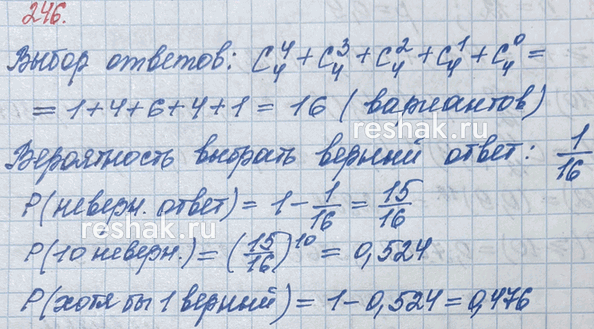 246.
Выбор ответов: C₄⁴ + C₄³ + C₄² + C₄¹ + C₄⁰ =
= 1 + 4 + 6 + 4 + 1 = 16 (вариантов)
reshak.ru
Вероятность выбрать верный ответ: 1/16
P(неверн. ответ) = 1 - 1/16 = 15/16
reshak.ru
P(10 неверн.) = (15/16)¹⁰ = 0,524
P(хотя бы 1 верный) = 1 - 0,524 = 0,476